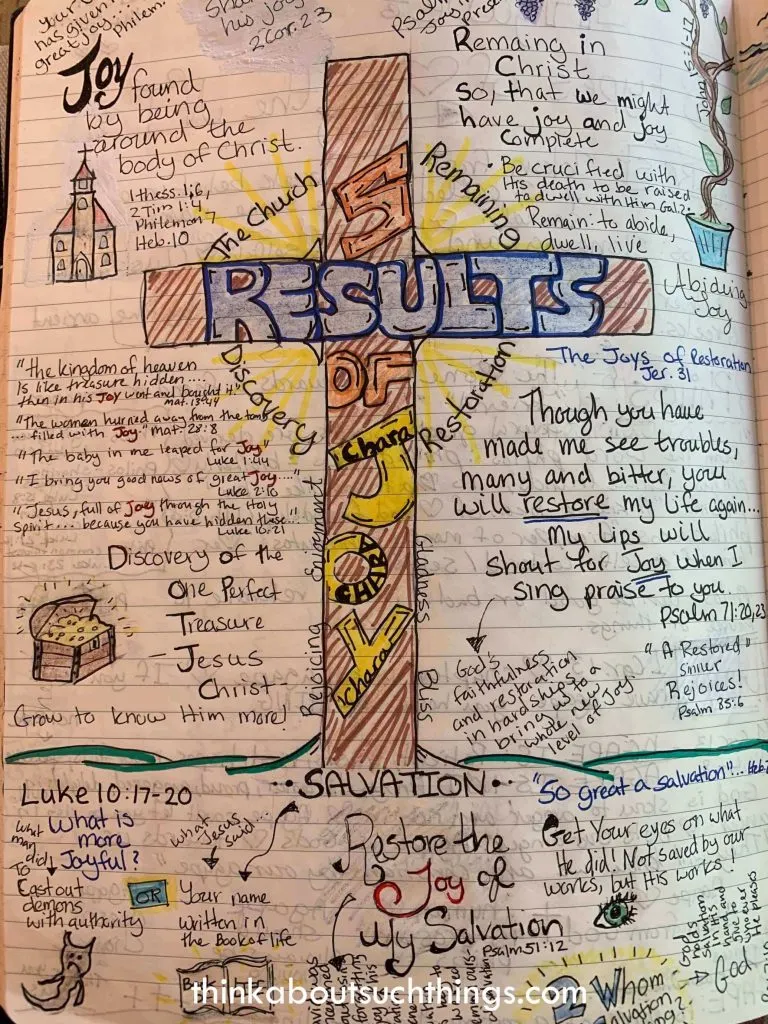 Your
has given
great joy...
Philem.
Share
his joy
2 Cor. 2:3
Psalm
Joy in
prese
Joy found
by being
around the
body of Christ.
1 thess. 1:6,
2 Tim 1:4
Philemon 7
Heb. 10
Remaing in
Christ
so, that we might
have joy and joy
complete
• Be crucified with
His death to be raised
to dwell with Him Gal 2:
Remain: to abide,
dwell, live
Abiding
Joy
The Church
Remaining
5
RESULTS
OF
JOY
Chara
CHARA
Chara
Discovery
Restoration
Enjoyment
Gladness
Rejoicing
Bliss
"the kingdom of heaven
is like treasure hidden....
then in his Joy went and bought it."
Mat. 13:44
"The women hurried away from the tomb
... filled with Joy." Mat. 28:8
"The baby in me leaped for Joy"
Luke 1:44
"I bring you good news of great Joy...."
Luke 2:10
"Jesus, full of Joy through the Holy
Spirit.... because you have hidden these..."
Luke 10:21
Discovery of the
One Perfect
Treasure
Jesus
Christ.
Grow to know Him more!
The Joys of Restoration
Jer. 31
Though you have
made me see troubles,
many and bitter, you
will restore my life again...
My lips will
shout for Joy when I
sing praise to you.
Psalm 71:20,23
God's
faithfulness
and restoration
in hardships
bring us to a
whole new
level of Joy.
"A Restored"
sinner
Rejoices!
Psalm 35:6
..SALVATION..
"So great a salvation"... Heb.
Luke 10:17-20
What is
more
Joyful?
what
man
did
To
Cast out
demons
with authority
OR
what Jesus
said...
Your name
written in
the Book of life
Restore the
Joy of
My Salvation
Psalm 51:12
Get Your eyes on what
He did! Not saved by our
works, but His works!
God
holds
Salvation
in his
hand and
give to
whoever
He pleases
God
Whom
thinkaboutsuchthings.com